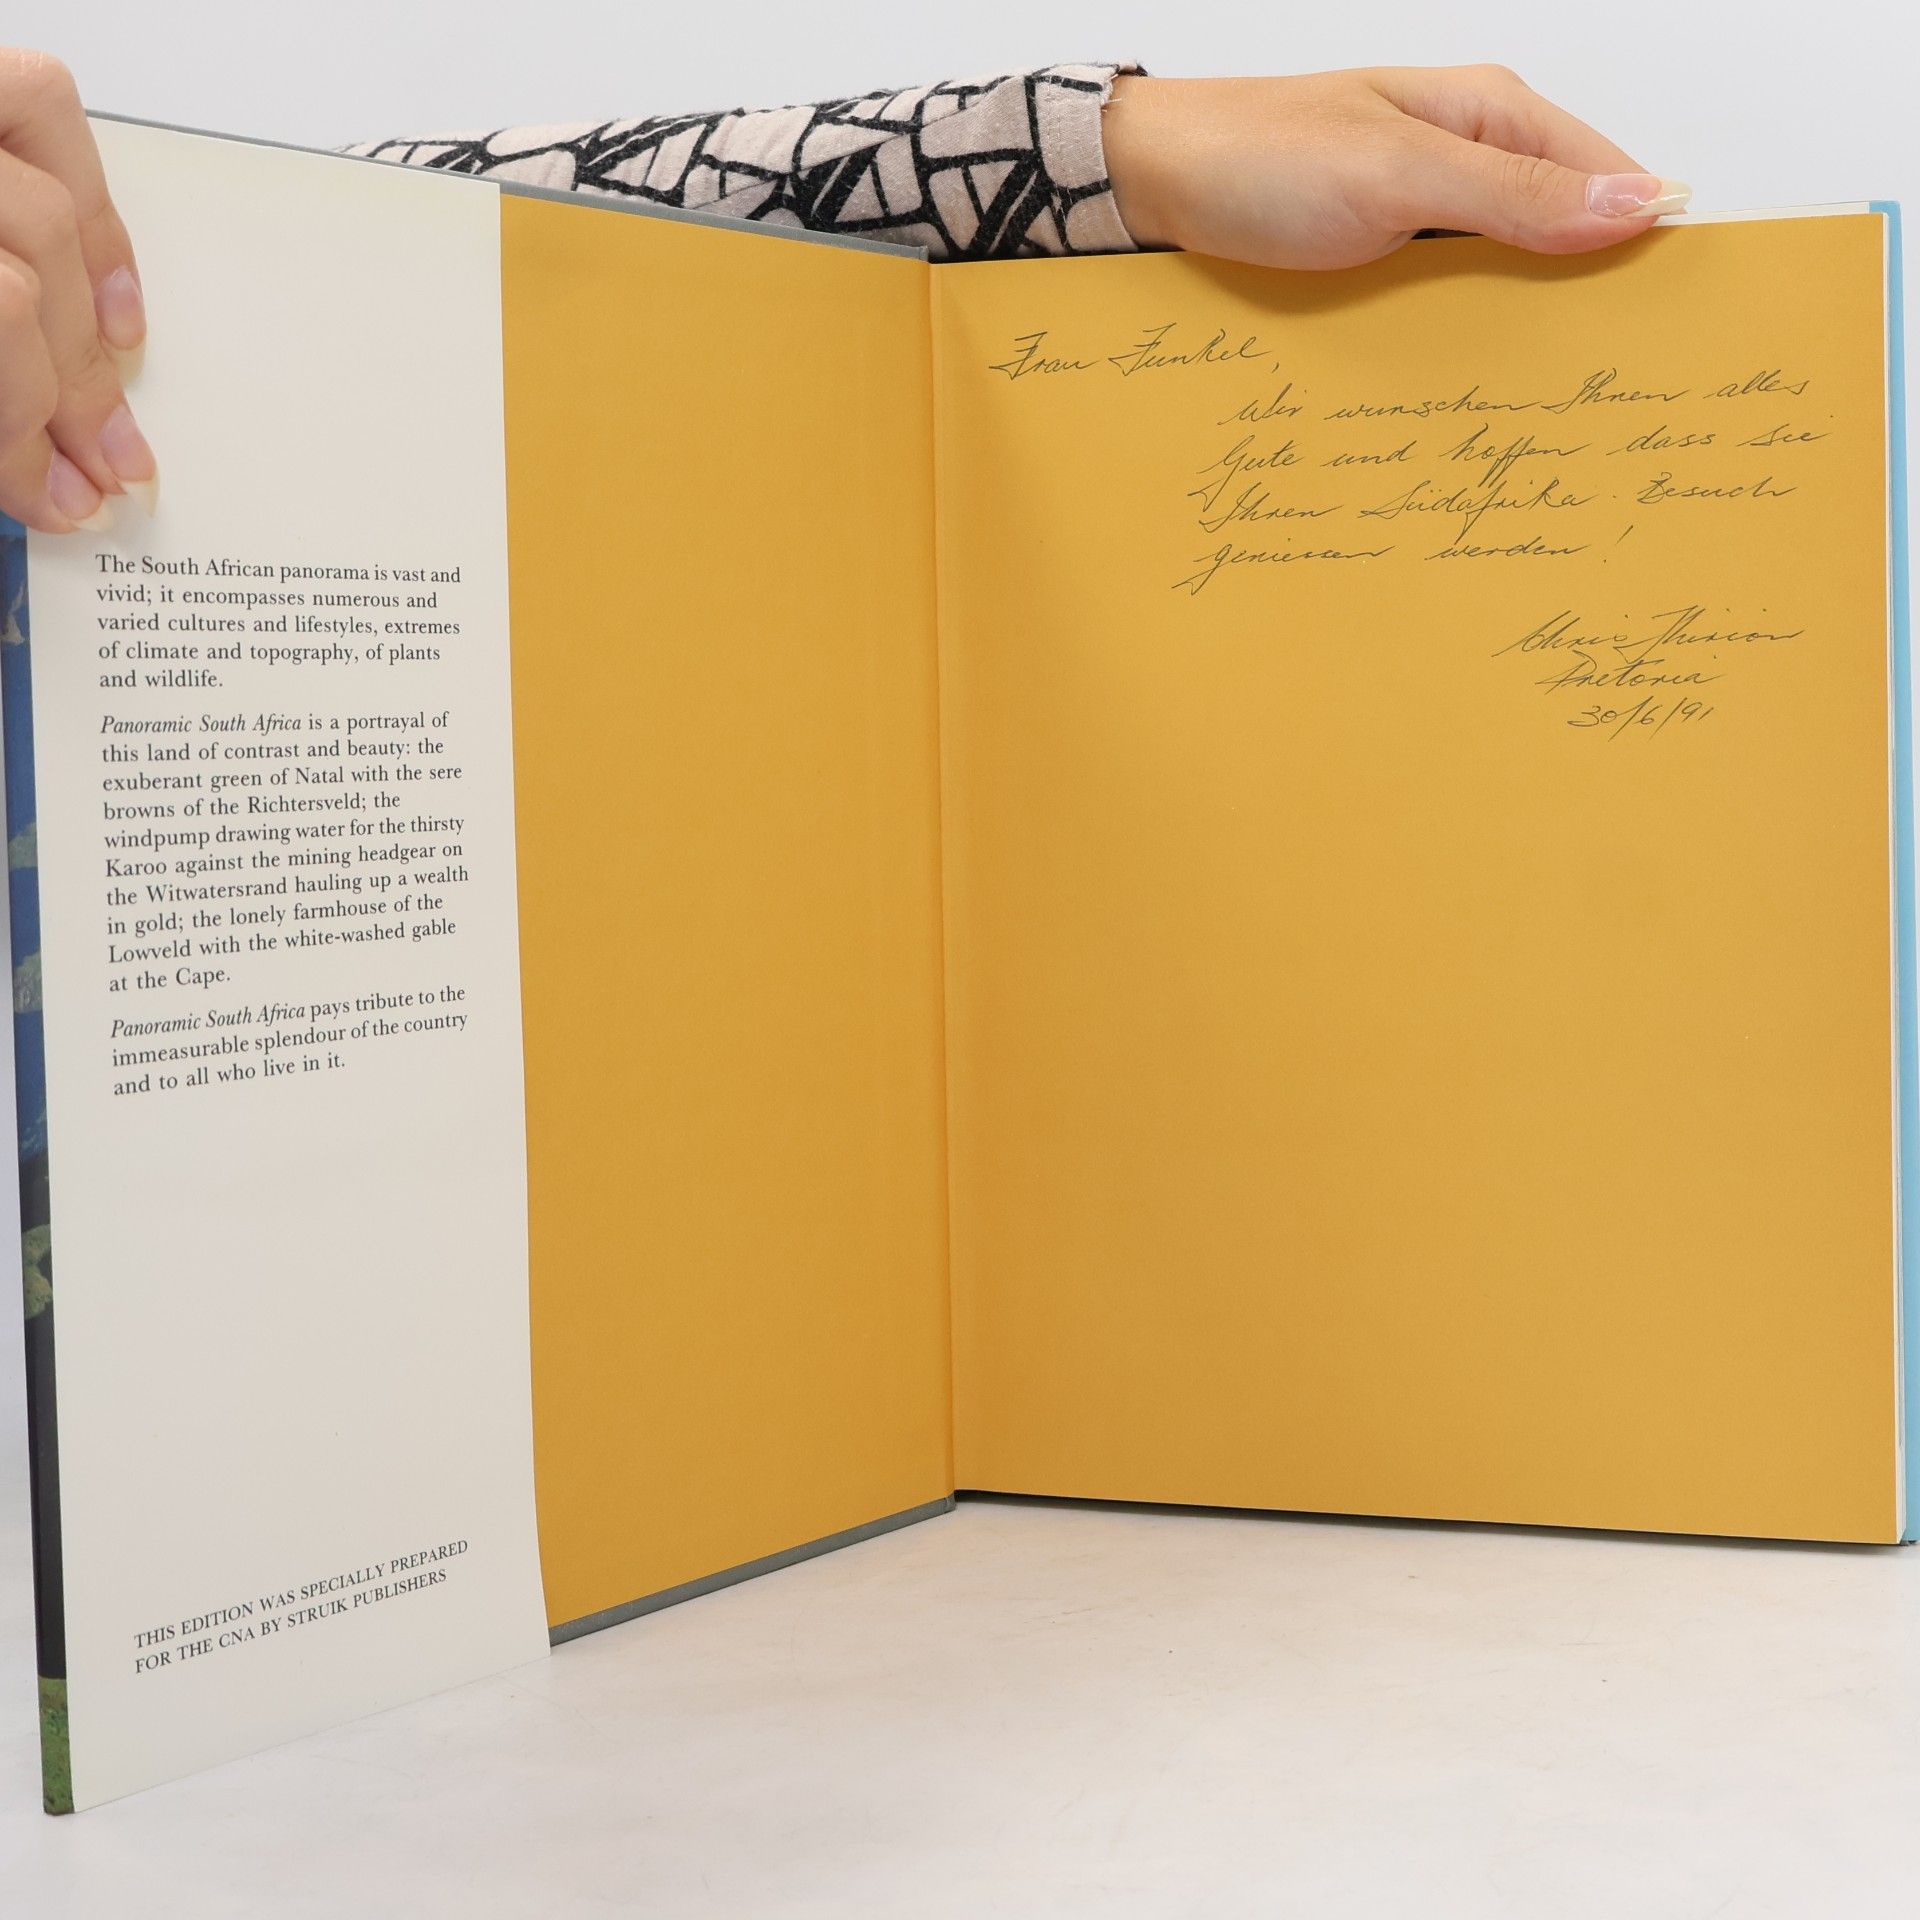 The South African panorama is vast and
vivid; it encompasses numerous and
varied cultures and lifestyles, extremes
of climate and topography, of plants
and wildlife.
Panoramic South Africa is a portrayal of
this land of contrast and beauty: the
exuberant green of Natal with the sere
browns of the Richtersveld; the
windpump drawing water for the thirsty
Karoo against the mining headgear on
the Witwatersrand hauling up a wealth
in gold; the lonely farmhouse of the
Lowveld with the white-washed gable
at the Cape.
Panoramic South Africa pays tribute to the
immeasurable splendour of the country
and to all who live in it.
THIS EDITION WAS SPECIALLY PREPARED
FOR THE CNA BY STRUIK PUBLISHERS
Frau Funkel,
Wir wunschen Ihnen alles
Gute und hoffen dass sie
Ihren Südafrika - Besuch
geniessen werden!
Chris Thirion
Pretoria
30/6/91